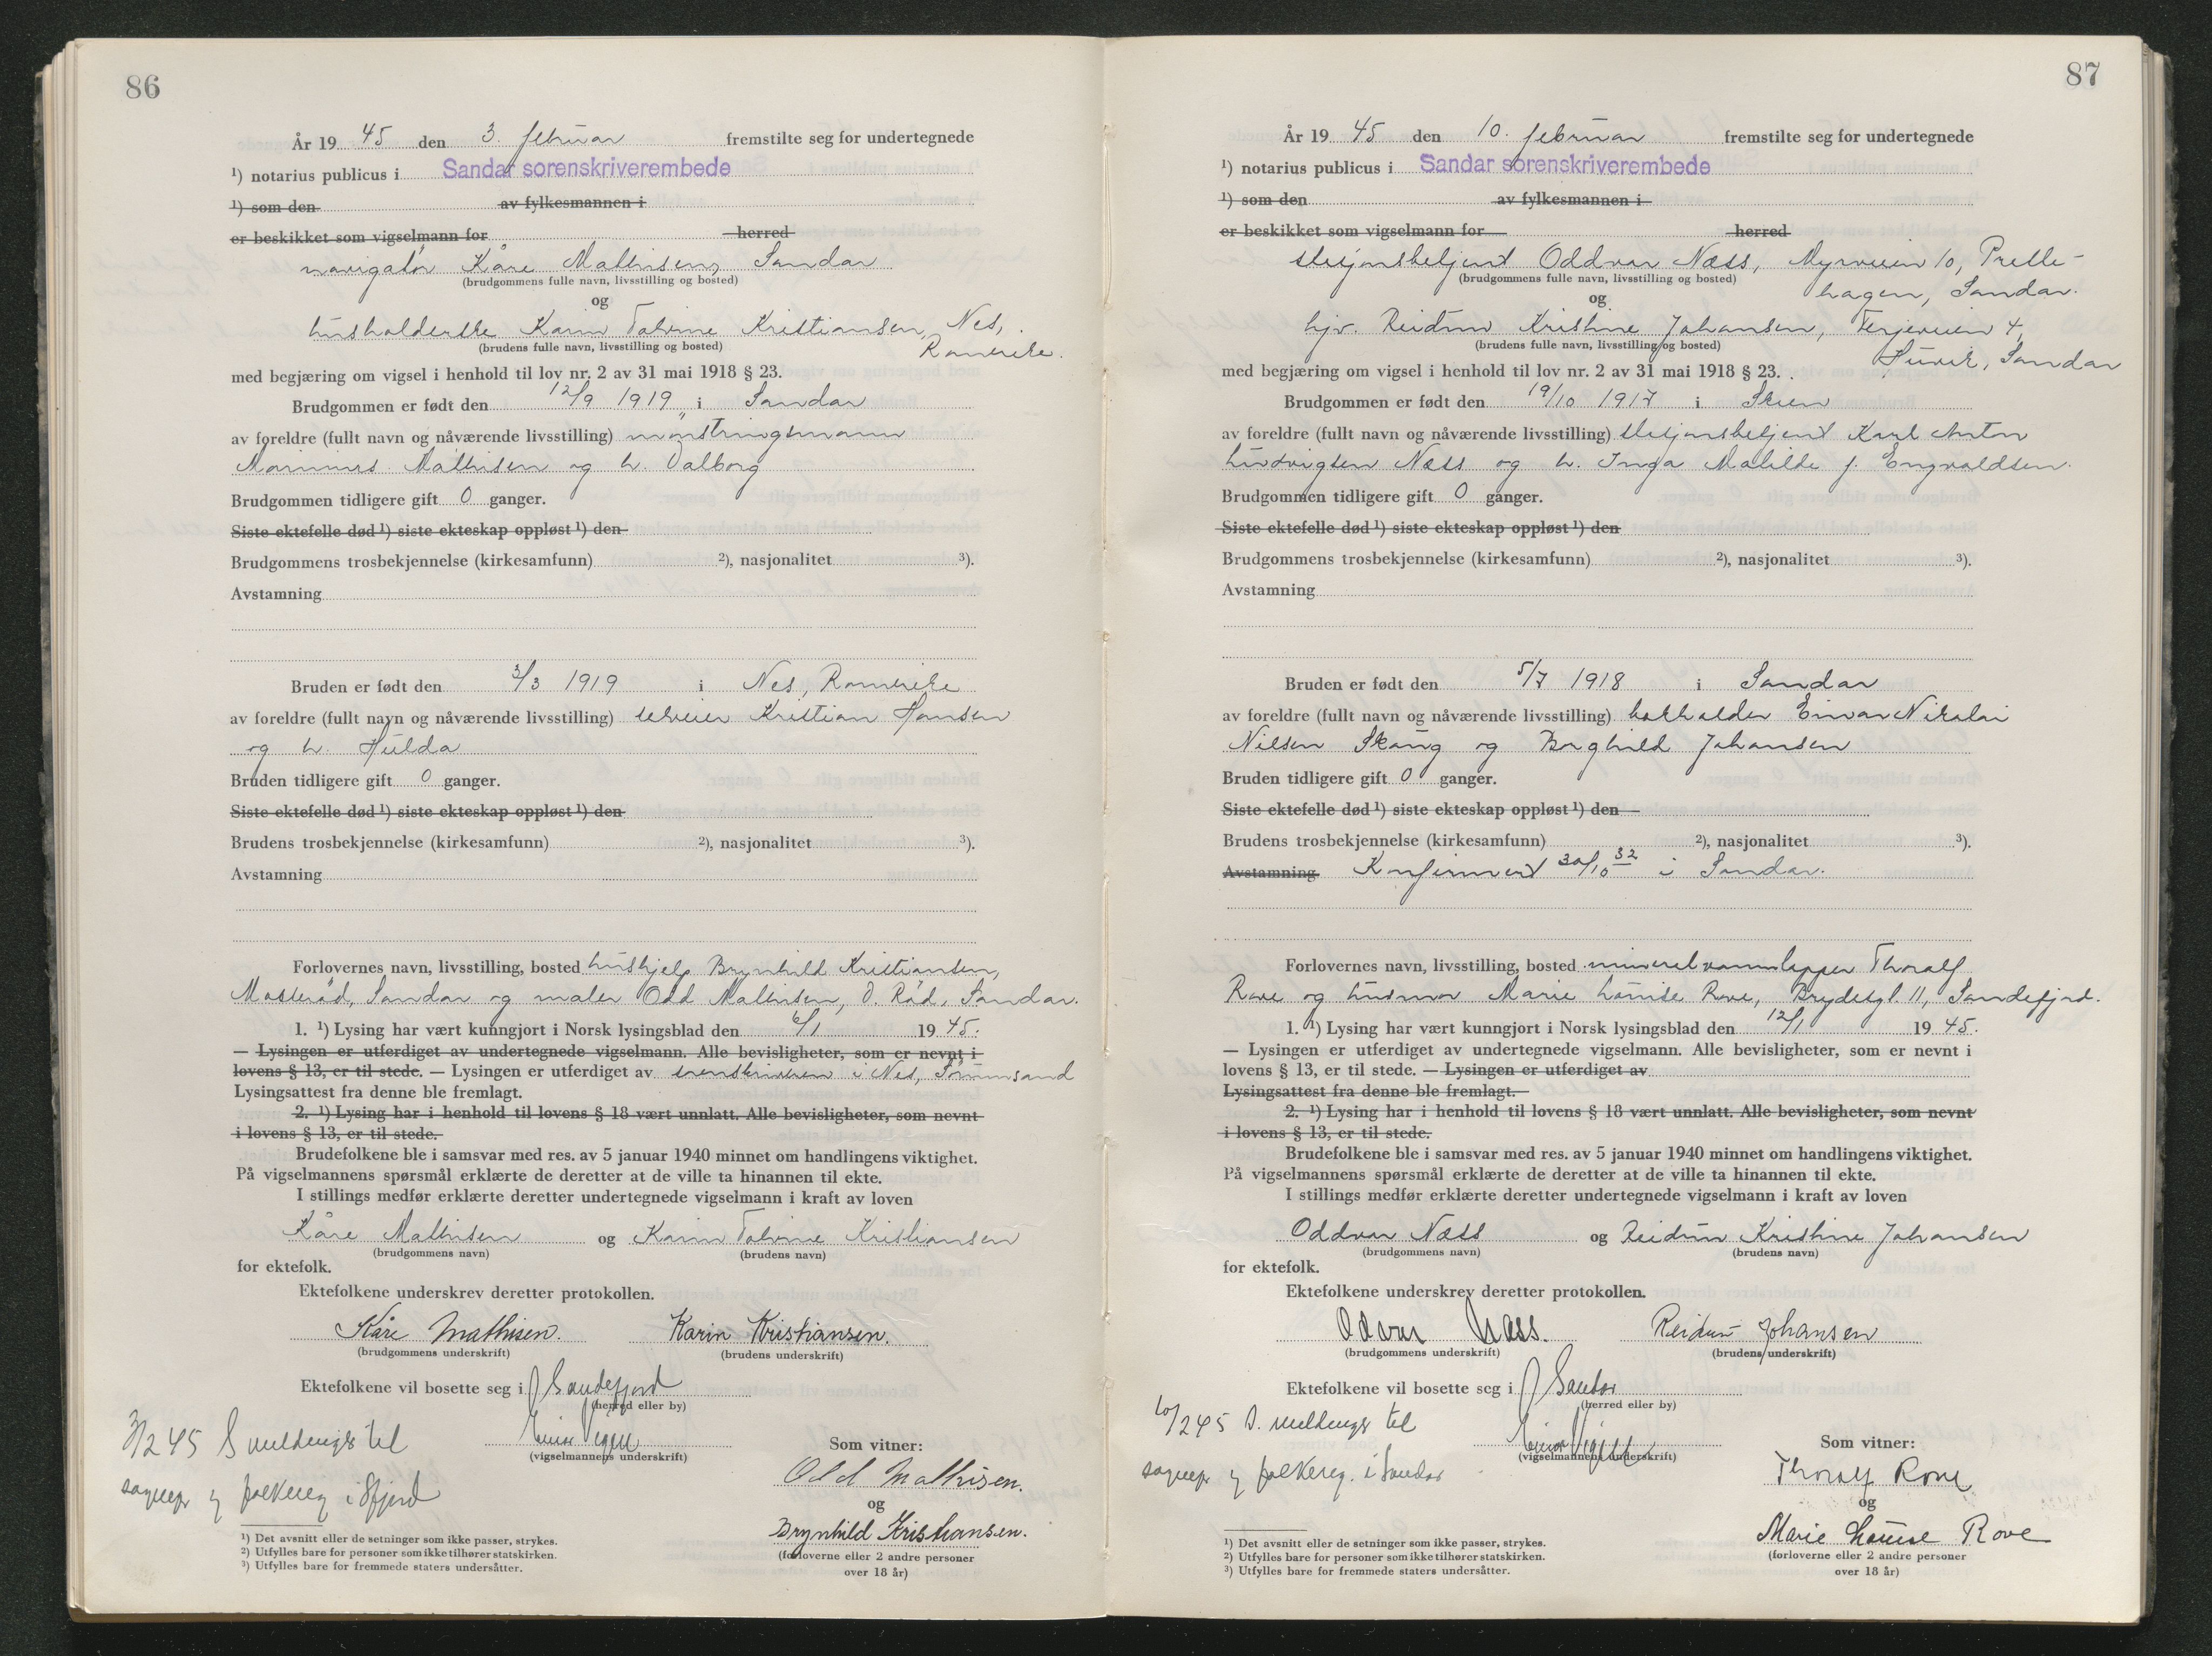 86
År 19 45 den 3. februar fremstilte seg for undertegnede
¹) notarius publicus i Sandar sorenskriverembede
¹) som den av fylkesmannen i
er beskikket som vigselmann for herred
navigatør Kåre Mathisen, Sandar
(brudgommens fulle navn, livsstilling og bosted)
og
husholderske Karin Tovine Kristiansen, Nes,
(brudens fulle navn, livsstilling og bosted)
Romerike.
med begjæring om vigsel i henhold til lov nr. 2 av 31 mai 1918 § 23.
Brudgommen er født den 12/9 1919 i Sandar
av foreldre (fullt navn og nåværende livsstilling) mønstringsmann
Marinius Mathisen og h. Valborg
Brudgommen tidligere gift 0 ganger.
Siste ektefelle død ¹) siste ekteskap oppløst ¹) den
Brudgommens trosbekjennelse (kirkesamfunn) ²), nasjonalitet ³).
Avstamning
Bruden er født den 3/3 1919 i Nes, Romerike
av foreldre (fullt navn og nåværende livsstilling) selveier Kristian Hansen
og h. Hulda
Bruden tidligere gift 0 ganger.
Siste ektefelle død ¹) siste ekteskap oppløst ¹) den
Brudens trosbekjennelse (kirkesamfunn) ²), nasjonalitet ³).
Avstamning
Forlovernes navn, livsstilling, bosted hushjelp Brynhild Kristiansen,
Mosserød, Sandar og maler Odd Mathisen, Ø. Rød, Sandar.
1. ¹) Lysing har vært kunngjort i Norsk lysingsblad den 6/1 19 45.
— Lysingen er utferdiget av undertegnede vigselmann. Alle bevisligheter, som er nevnt i
lovens § 13, er til stede. — Lysingen er utferdiget av sorenskriveren i Nes, Sørumsand
Lysingsattest fra denne ble fremlagt.
2. ¹) Lysing har i henhold til lovens § 18 vært unnlatt. Alle bevisligheter, som nevnt
i lovens § 13, er til stede.
Brudefolkene ble i samsvar med res. av 5 januar 1940 minnet om handlingens viktighet.
På vigselmannens spørsmål erklærte de deretter at de ville ta hinannen til ekte.
I stillings medfør erklærte deretter undertegnede vigselmann i kraft av loven
Kåre Mathisen og Karin Tovine Kristiansen
(brudgommens navn) (brudens navn)
for ektefolk.
Ektefolkene underskrev deretter protokollen.
Kåre Mathisen. Karin Kristiansen.
(brudgommens underskrift) (brudens underskrift)
Ektefolkene vil bosette seg i Sandefjord
(herred eller by)
3/2 45 S meldinger til
sognepr og folkereg i Sfjord
(vigselmannens underskrift)
Som vitner:
Odd Mathisen.
og
Brynhild Kristiansen.
(forloverne eller 2 andre personer
over 18 år)
¹) Det avsnitt eller de setninger som ikke passer, strykes.
²) Utfylles bare for personer som ikke tilhører statskirken.
³) Utfylles bare for fremmede staters undersåtter.
87
År 19 45 den 10. februar fremstilte seg for undertegnede
¹) notarius publicus i Sandar sorenskriverembede
¹) som den av fylkesmannen i
er beskikket som vigselmann for herred
stasjonsbetjent Oddvar Næss, Myrveien 10, Prelle-
(brudgommens fulle navn, livsstilling og bosted)
hagen, Sandar.
og
hjv. Reidun Kristine Johansen, Terjeveien 4,
(brudens fulle navn, livsstilling og bosted)
Huvik, Sandar
med begjæring om vigsel i henhold til lov nr. 2 av 31 mai 1918 § 23.
Brudgommen er født den 19/10 1917 i Skien
av foreldre (fullt navn og nåværende livsstilling) stasjonsbetjent Karl Anton
Ludvigsen Næss og h. Inga Matilde f. Engvaldsen.
Brudgommen tidligere gift 0 ganger.
Siste ektefelle død ¹) siste ekteskap oppløst ¹) den
Brudgommens trosbekjennelse (kirkesamfunn) ²), nasjonalitet ³).
Avstamning
Bruden er født den 5/7 1918 i Sandar
av foreldre (fullt navn og nåværende livsstilling) bokholder Einar Nikolai
Nilsen Skaug og Borghild Johansen
Bruden tidligere gift 0 ganger.
Siste ektefelle død ¹) siste ekteskap oppløst ¹) den
Brudens trosbekjennelse (kirkesamfunn) ²), nasjonalitet ³).
Avstamning Konfirmert 30/10 32 i Sandar.
Forlovernes navn, livsstilling, bosted mineralvanntapper Thoralf
Rove og husmor Marie Louise Rove, Brydesgt. 11, Sandefjord.
1. ¹) Lysing har vært kunngjort i Norsk lysingsblad den 12/1 19 45.
— Lysingen er utferdiget av undertegnede vigselmann. Alle bevisligheter, som er nevnt i
lovens § 13, er til stede. — Lysingen er utferdiget av
Lysingsattest fra denne ble fremlagt.
2. ¹) Lysing har i henhold til lovens § 18 vært unnlatt. Alle bevisligheter, som nevnt
i lovens § 13, er til stede.
Brudefolkene ble i samsvar med res. av 5 januar 1940 minnet om handlingens viktighet.
På vigselmannens spørsmål erklærte de deretter at de ville ta hinannen til ekte.
I stillings medfør erklærte deretter undertegnede vigselmann i kraft av loven
Oddvar Næss og Reidun Kristine Johansen
(brudgommens navn) (brudens navn)
for ektefolk.
Ektefolkene underskrev deretter protokollen.
Odvar Næss. Reidun Johansen
(brudgommens underskrift) (brudens underskrift)
Ektefolkene vil bosette seg i Sandar
(herred eller by)
10/2 45 S. meldinger til
sognepr og folkereg. i Sandar
(vigselmannens underskrift)
Som vitner:
Thoralf Rove
og
Marie Louise Rove
(forloverne eller 2 andre personer
over 18 år)
¹) Det avsnitt eller de setninger som ikke passer, strykes.
²) Utfylles bare for personer som ikke tilhører statskirken.
³) Utfylles bare for fremmede staters undersåtter.